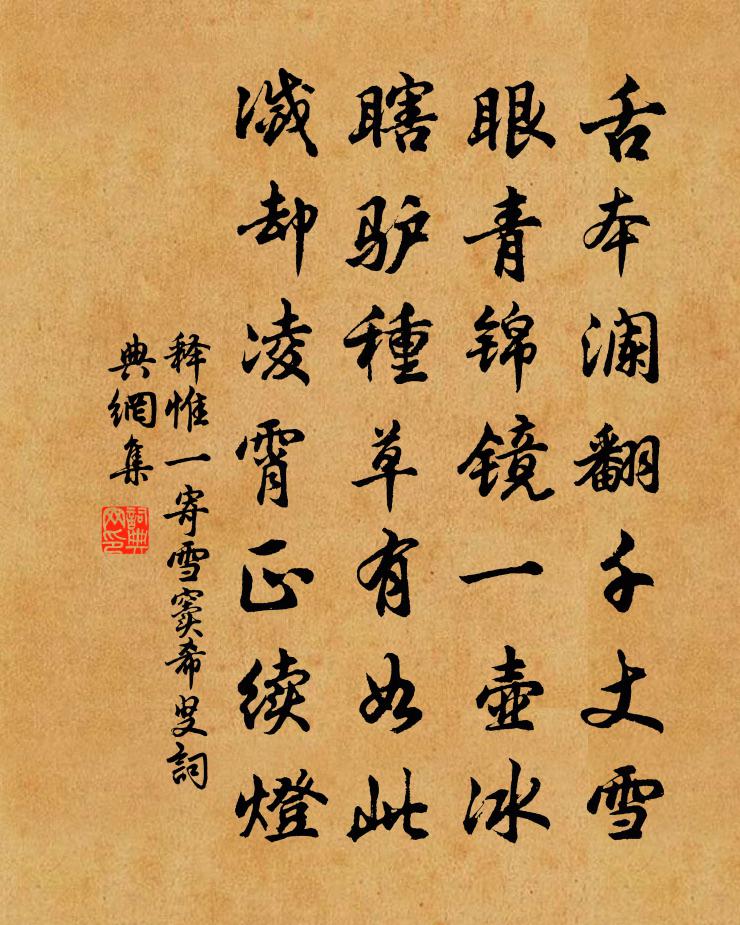 舌本澜翻千丈雪
眼青锦镜一壶冰
瞎驴種草有如此
滅却凌霄正续燈
释惟一寄雪窦希叟詞
典網集
詞典网印